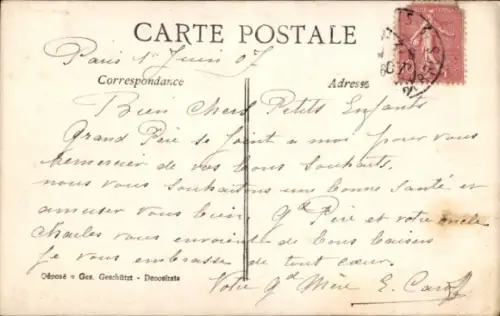 CARTE POSTALE
Paris 1er Juin 07
Correspondance
Adresse
Bien chers Petits Enfants
Grand Père se joint à moi pour vous
remercier de vos bons souhaits.
nous vous souhaitons une bonne santé et
amuser vous bien Gd Père et votre oncle
Charles vous envoient de bons baisers
Je vous embrasse de tout cœur.
Déposé - Ges. Geschützt - Deposirate
Votre Gd Mère E.